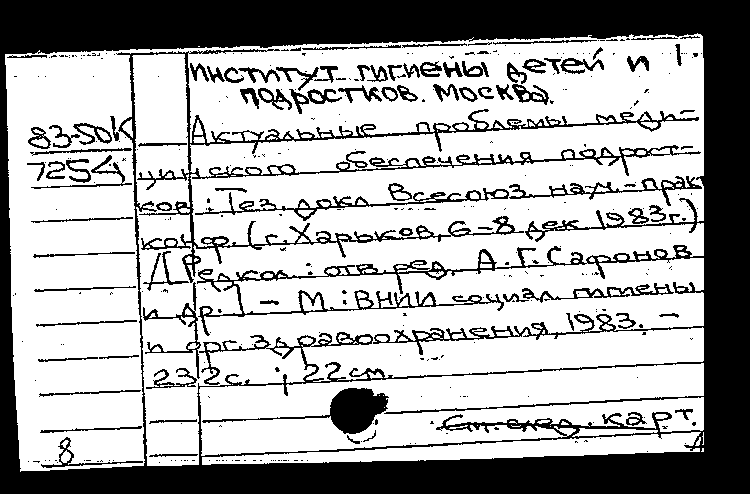 Институт гигиены детей и 1.
подростков. Москва.
83-50К Актуальные проблемы меди-
7254 цинского обеспечения подрост-
ков: Тез. докл Всесоюз. науч.-практ
конф. (г. Харьков, 6-8 дек 1983г.)
/[Редкол.: отв. ред. А.Г. Сафонов
и др.]. - М.: ВНИИ социал. гигиены
и орг. здравоохранения, 1983. -
232с. ; 22см.
См. след. карт.
8